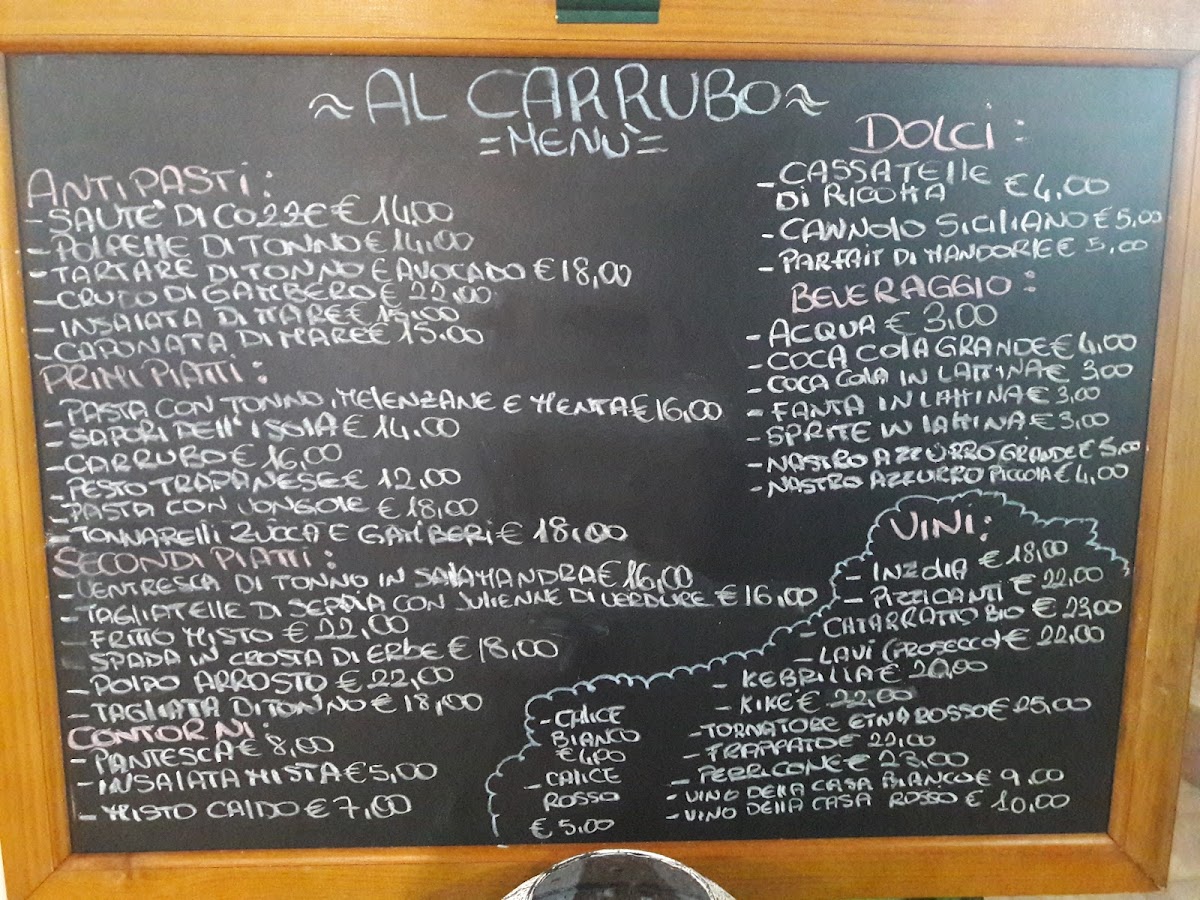 ≈ AL CARRUBO ≈
= MENÙ =
ANTIPASTI:
- SAUTE' DI COZZE € 14,00
- POLPETTE DI TONNO € 14,00
- TARTARE DI TONNO E AVOCADO € 18,00
- CRUDO DI GAMBERO € 22,00
- INSALATA DI MARE € 15,00
- CAPONATA DI MARE € 15,00
PRIMI PIATTI:
- PASTA CON TONNO, MELENZANE E MENTA € 16,00
- SAPORI DELL'ISOLA € 14,00
- CARRUBO € 16,00
- PESTO TRAPANESE € 12,00
- PASTA CON VONGOLE € 18,00
- TONNARELLI ZUCCA E GAMBERI € 18,00
SECONDI PIATTI:
- VENTRESCA DI TONNO IN SALAMANDRA € 16,00
- TAGLIATELLE DI SEPPIA CON JULIENNE DI VERDURE € 16,00
- FRITTO MISTO € 22,00
SPADA IN CROSTA DI ERBE € 18,00
- POLPO ARROSTO € 22,00
- TAGLIATA DI TONNO € 18,00
CONTORNI:
- PANTESCA € 8,00
- INSALATA MISTA € 5,00
- MISTO CALDO € 7,00
DOLCI:
- CASSATELLE
DI RICOTTA € 4,00
- CANNOLO SICILIANO € 5,00
- PARFAIT DI MANDORLE € 5,00
BEVERAGGIO:
- ACQUA € 3,00
- COCA COLA GRANDE € 4,00
- COCA COLA IN LATTINA € 3,00
- FANTA IN LATTINA € 3,00
- SPRITE IN LATTINA € 3,00
- NASTRO AZZURRO GRANDE € 5,00
- NASTRO AZZURRO PICCOLA € 4,00
VINI:
- INZOLIA € 18,00
- PIZZICANTI € 22,00
- CATARRATTO BIO € 23,00
- LAVÍ (PROSECCO) € 22,00
- KEBRILLA € 20,00
- KIKÉ € 22,00
- TORNATORE ETNA ROSSO € 25,00
- FRAPPATO € 22,00
- PERRICONE € 23,00
- VINO DELLA CASA BIANCO € 9,00
- VINO DELLA CASA ROSSO € 10,00
- CALICE
BIANCO
€ 4,00
- CALICE
ROSSO
€ 5,00